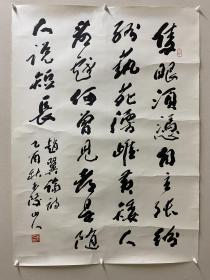 隻眼須憑自主張紛
紛藝苑漫雌黄矮人
看戲何曾見都是隨
人説短長
趙翼論詩
乙酉秋山人